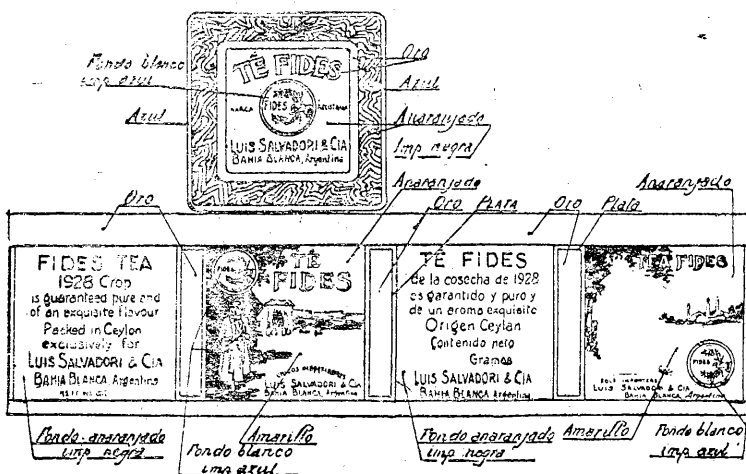 Fondo blanco
imp azul
Oro
Azul
Azul
Anaranjado
Imp negra
TÉ FIDES
FIDES
MARCA REGISTRADA
LUIS SALVADORI & CIA
BAHIA BLANCA, Argentina
Oro
Anaranjado
Oro
PLATA
Oro
Plata
Anaranjado
FIDES TEA
1928 Crop
is guaranteed pure and
of an exquisite flavour
Packed in Ceylon
exclusively for
LUIS SALVADORI & CIA
BAHIA BLANCA, Argentina
FIDES
TÉ
FIDES
LUIS SALVADORI & CIA
BAHIA BLANCA, Argentina
TÉ FIDES
de la cosecha de 1928
es garantido y puro y
de un aroma exquisito
Origen Ceylan
Contenido neto
Gramos
LUIS SALVADORI & CIA
BAHIA BLANCA, Argentina
TEA FIDES
FIDES
SOLE IMPORTERS
LUIS SALVADORI & CIA
BAHIA BLANCA, Argentina
Fondo anaranjado
imp negra
Fondo blanco
imp azul
Amarillo
Fondo anaranjado
imp negra
Amarillo
Fondo blanco
imp azul